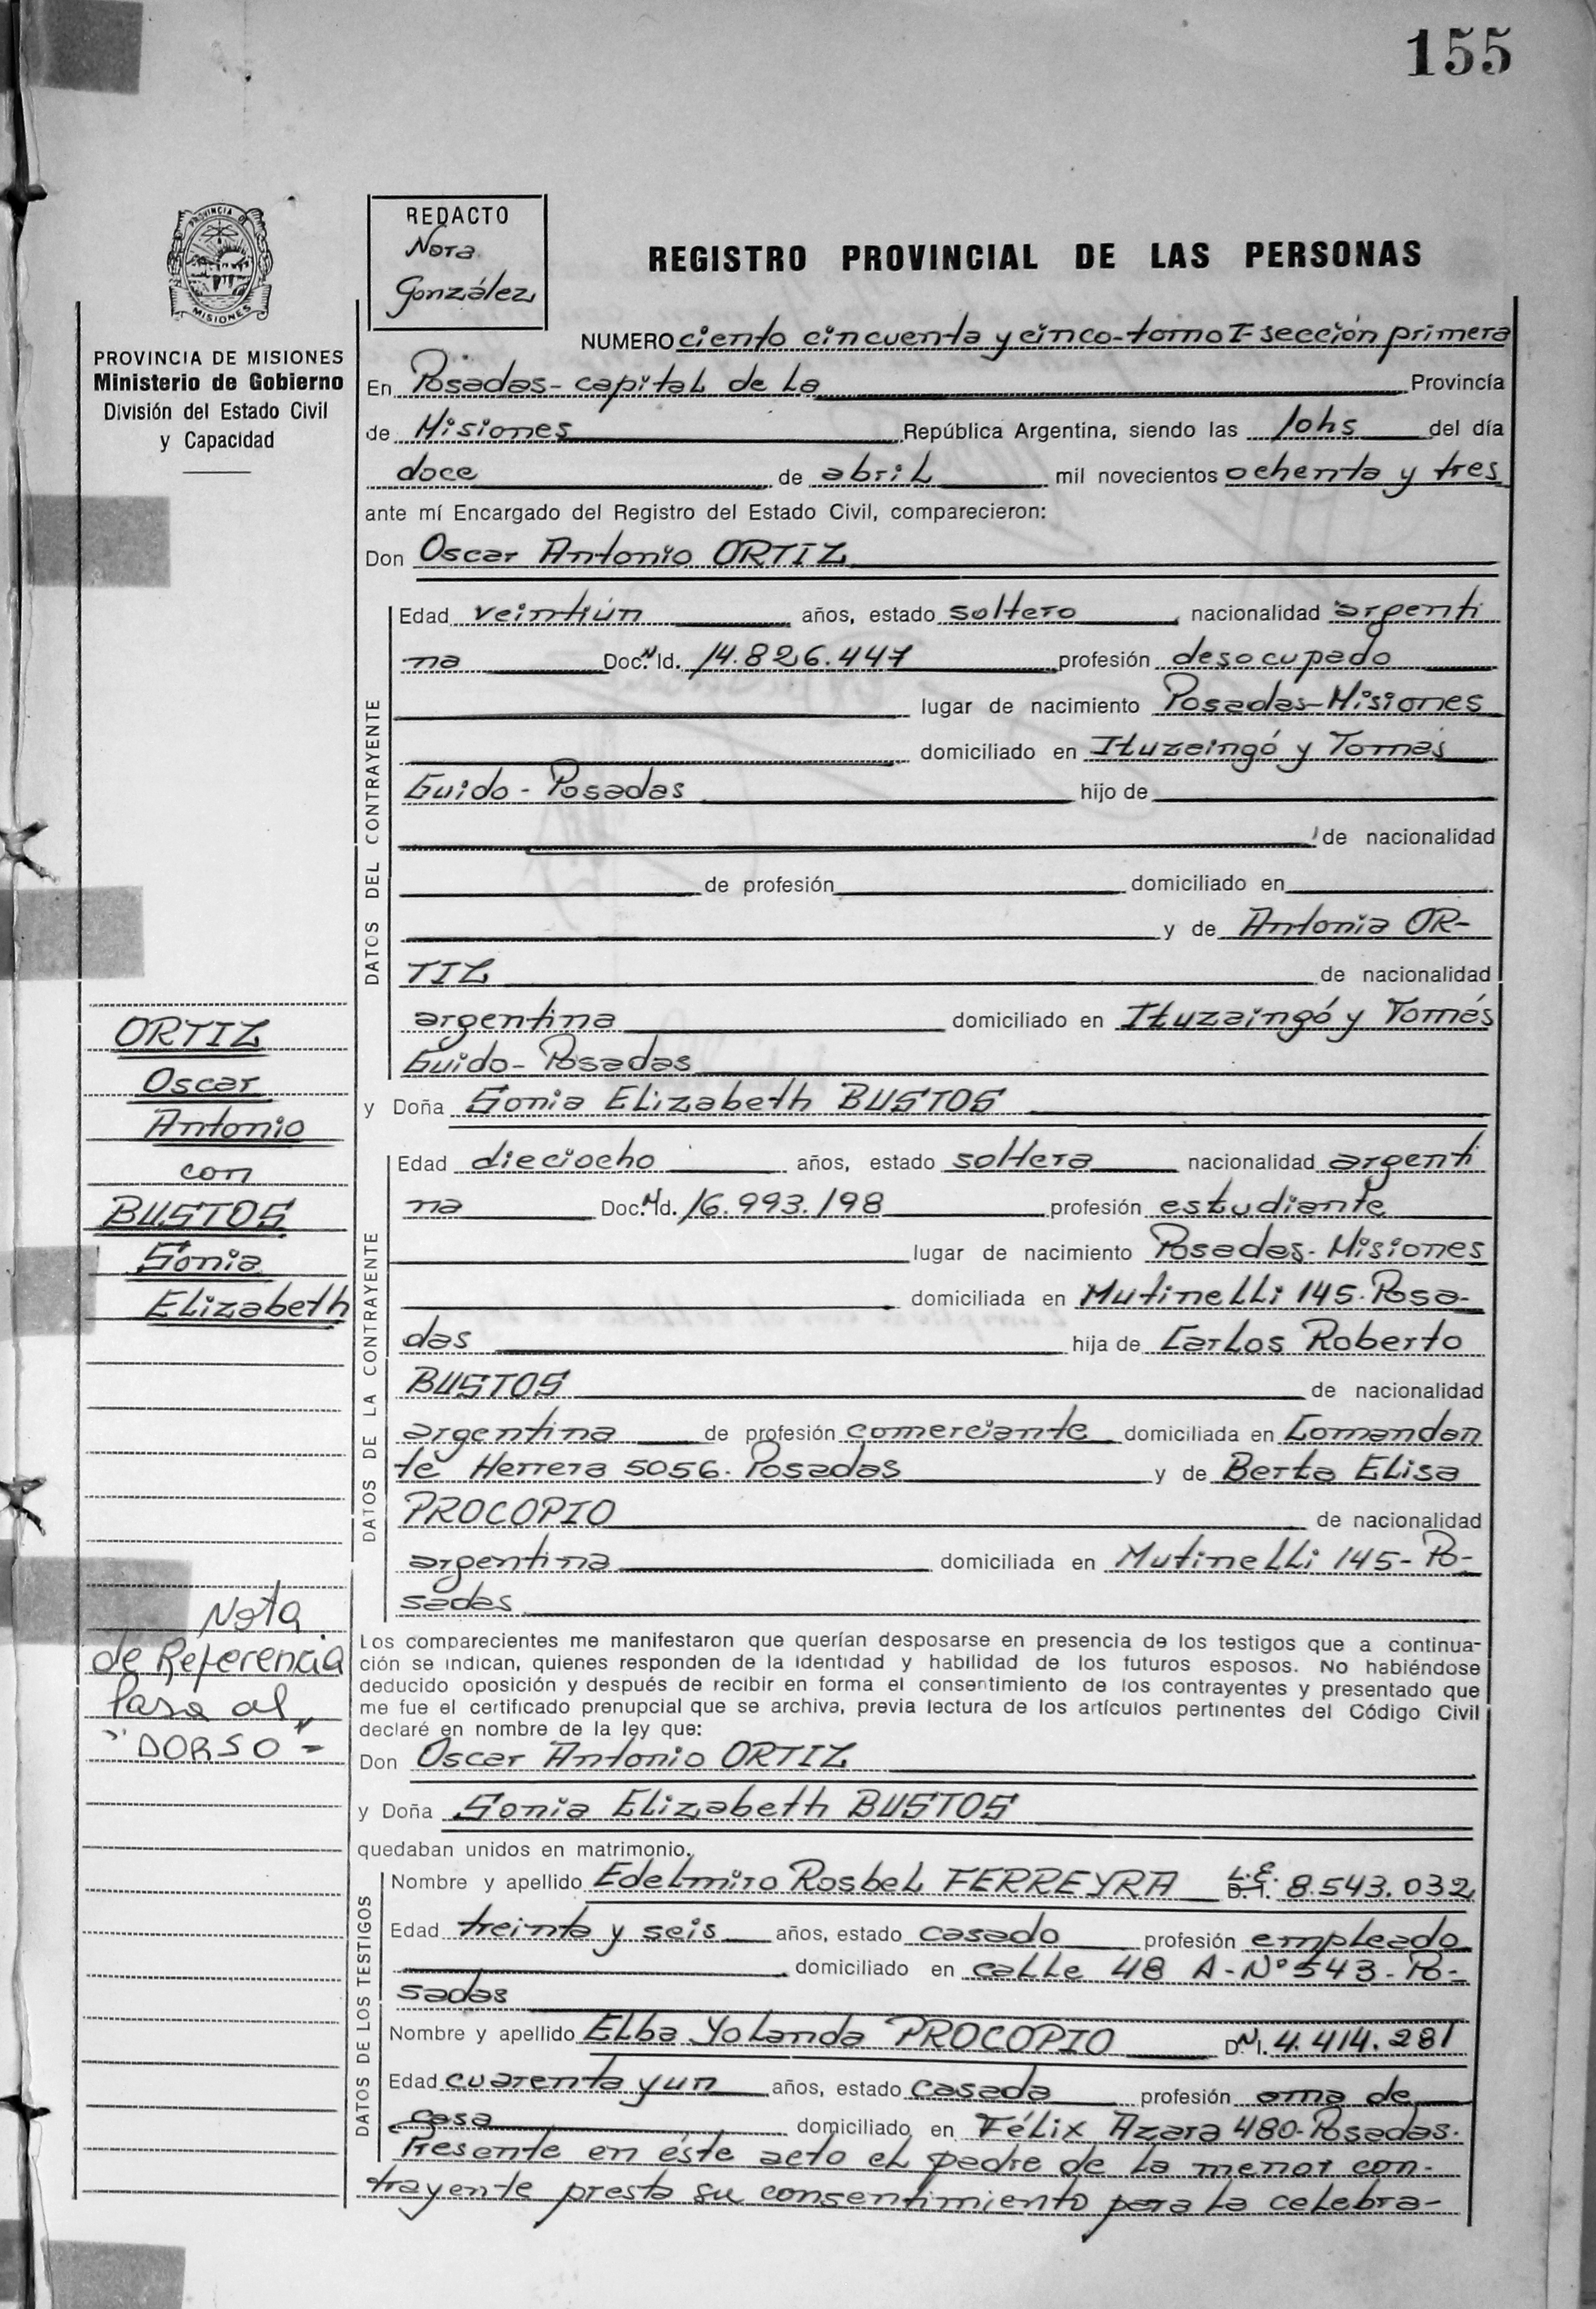 155
PROVINCIA DE
MISIONES
PROVINCIA DE MISIONES
Ministerio de Gobierno
División del Estado Civil
y Capacidad
REDACTO
Nora
González
REGISTRO PROVINCIAL DE LAS PERSONAS
NUMERO ciento cincuenta y cinco-tomo I-sección primera
En Posadas-capital de la Provincia
de Misiones República Argentina, siendo las 10hs del día
doce de abril mil novecientos ochenta y tres
ante mí Encargado del Registro del Estado Civil, comparecieron:
Don Oscar Antonio ORTIZ
DATOS DEL CONTRAYENTE
Edad veintiún años, estado soltero nacionalidad argenti
na Doc.N Id. 14.826.447 profesión desocupado
lugar de nacimiento Posadas-Misiones
domiciliado en Ituzaingó y Tomás
Guido-Posadas hijo de
de nacionalidad
de profesión domiciliado en
y de Antonia OR-
TIZ de nacionalidad
argentina domiciliado en Ituzaingó y Tomás
Guido-Posadas
y Doña Sonia Elizabeth BUSTOS
DATOS DE LA CONTRAYENTE
Edad dieciocho años, estado soltera nacionalidad argenti
na Doc.N Id. 16.993.198 profesión estudiante
lugar de nacimiento Posadas-Misiones
domiciliada en Mutinelli 145-Posa-
das hija de Carlos Roberto
BUSTOS de nacionalidad
argentina de profesión comerciante domiciliada en Comandan
te Herrera 5056-Posadas y de Berta Elisa
PROCOPIO de nacionalidad
argentina domiciliada en Mutinelli 145-Po-
sadas
Los comparecientes me manifestaron que querían desposarse en presencia de los testigos que a continua-
ción se indican, quienes responden de la identidad y habilidad de los futuros esposos. No habiéndose
deducido oposición y después de recibir en forma el consentimiento de los contrayentes y presentado que
me fue el certificado prenupcial que se archiva, previa lectura de los artículos pertinentes del Código Civil
declaré en nombre de la ley que:
Don Oscar Antonio ORTIZ
y Doña Sonia Elizabeth BUSTOS
quedaban unidos en matrimonio.
DATOS DE LOS TESTIGOS
Nombre y apellido Edelmiro Rosbel FERREYRA L.E. D.I. 8.543.032
Edad treinta y seis años, estado casado profesión empleado
domiciliado en calle 48 A-Nº543-Po-
sadas
Nombre y apellido Elba Yolanda PROCOPIO D.N.I. 4.414.281
Edad cuarenta y un años, estado casada profesión ama de
casa domiciliado en Félix Azara 480-Posadas.
Presente en éste acto el padre de la menor con-
trayente presta su consentimiento para la celebra-
ORTIZ
Oscar
Antonio
con
BUSTOS
Sonia
Elizabeth
Nota
de Referencia
Pasa al
"DORSO"-